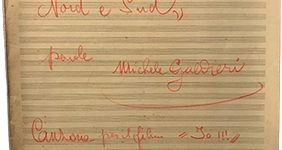 Nord e Sud
parole Michele Galdieri
Canzone per il film « Io !!! »